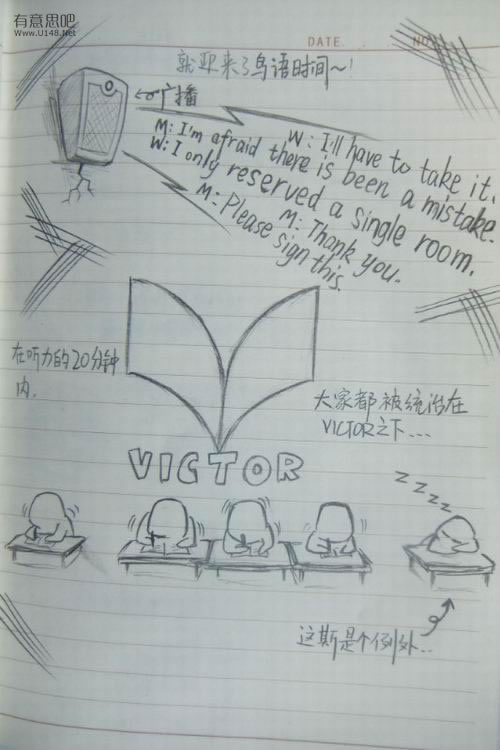 有意思吧
www.U148.Net
DATE. NO
就迎来了鸟语时间~!
广播
W: I'll have to take it.
M: I'm afraid there is been a mistake.
W: I only reserved a single room.
M: Thank you.
M: Please sign this.
在听力的20分钟
内.
大家都被统治在
VICTOR之下...
VICTOR
ZZZZ
这斯是个例外..